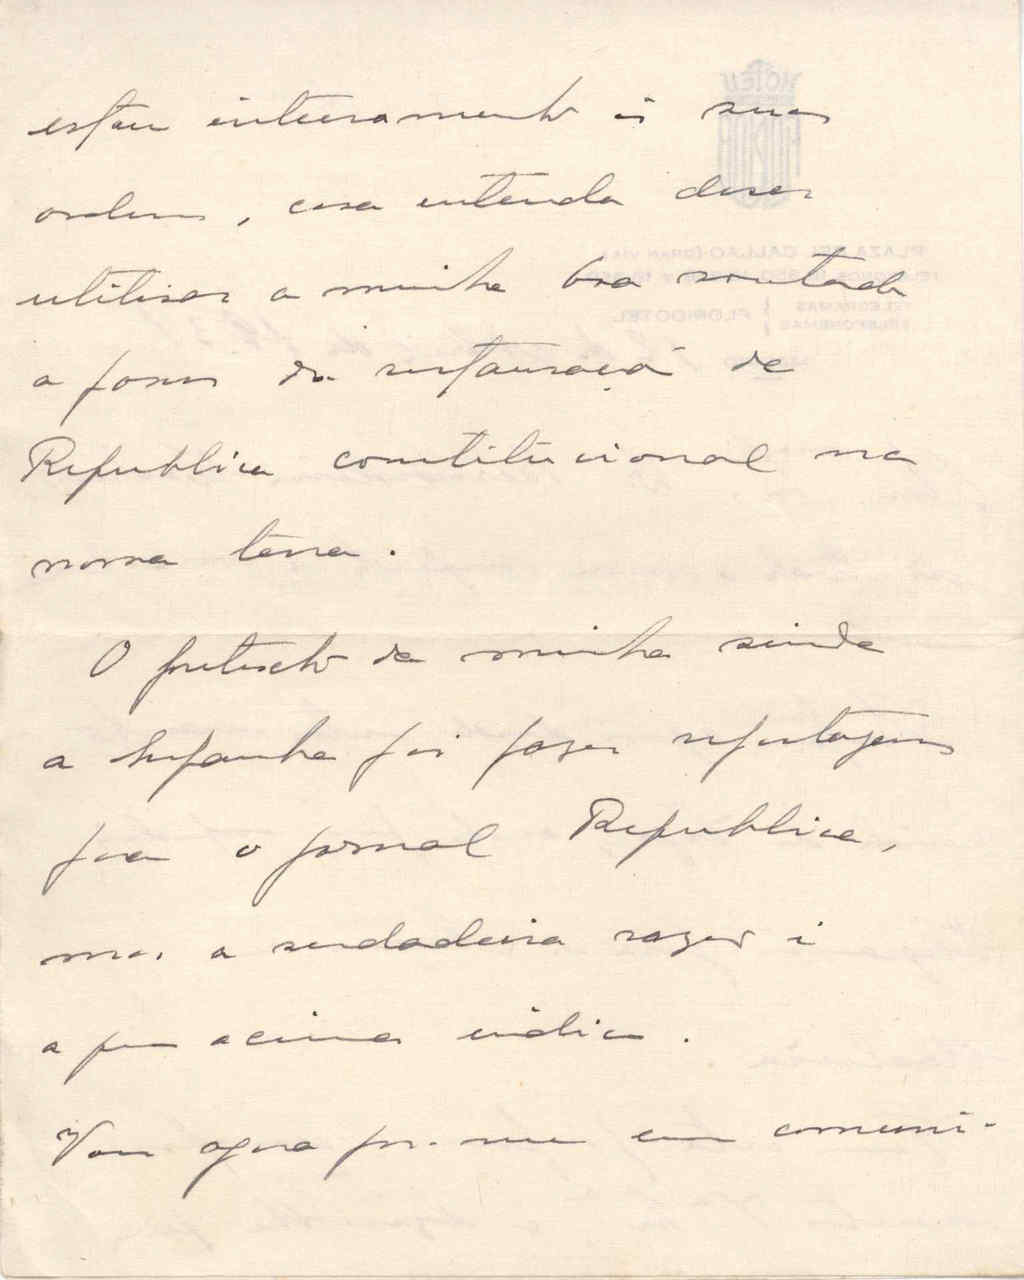 estou inteiramente ás suas
ordens, caso entenda dever
utilisar a minha boa vontade
a favor da restauração da
Republica constitucional na
nossa terra.
O pretexto da minha vinda
a Hespanha foi fazer reportagens
para o jornal Republica,
mas a verdadeira razão é
a que acima indico.
Vou agora pôr-me em comuni-
HOTEL
FLORIDA
PLAZA DEL CALLAO (GRAN VIA)
TELEGRAMAS
TELEFONEMAS
FLORIDOTEL